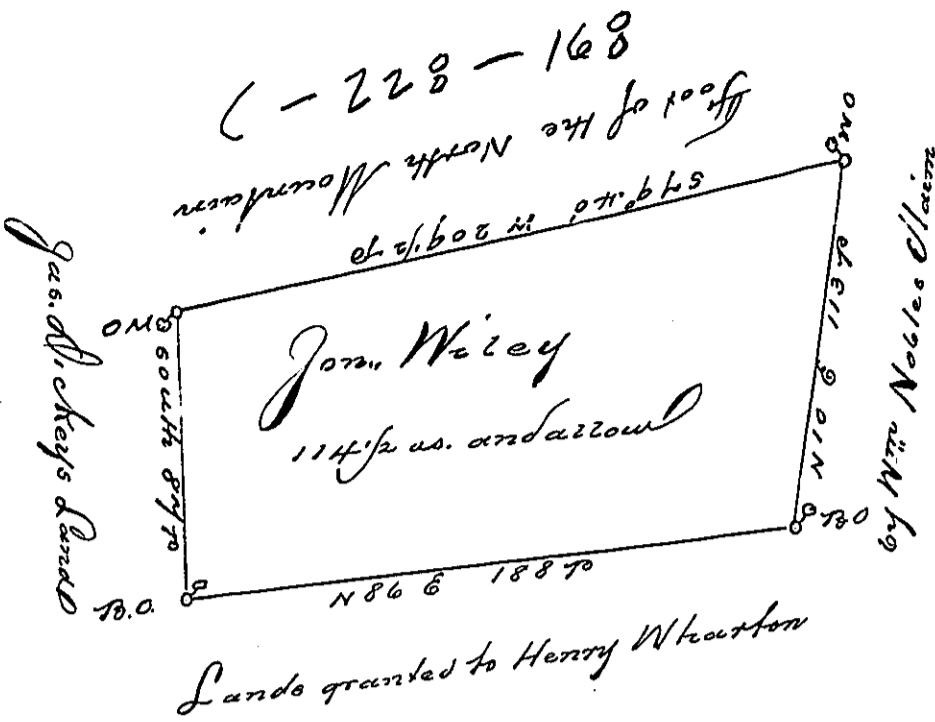 Foot of the North Mountain
S79°.40' W 209½ P
WO
WO
Jas. Dickeys Land
South 84 P
Wiley
114½ as. and allowe
N10 E 113 P
by Wm Nobles Claim
B.O
B.O.
N86 E 188 P
Lands granted to Henry Wharton